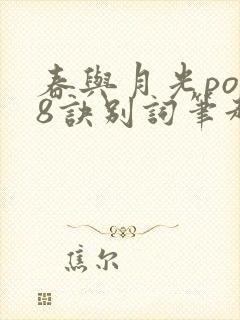 春與月光po
8訣別詞筆
焦尔